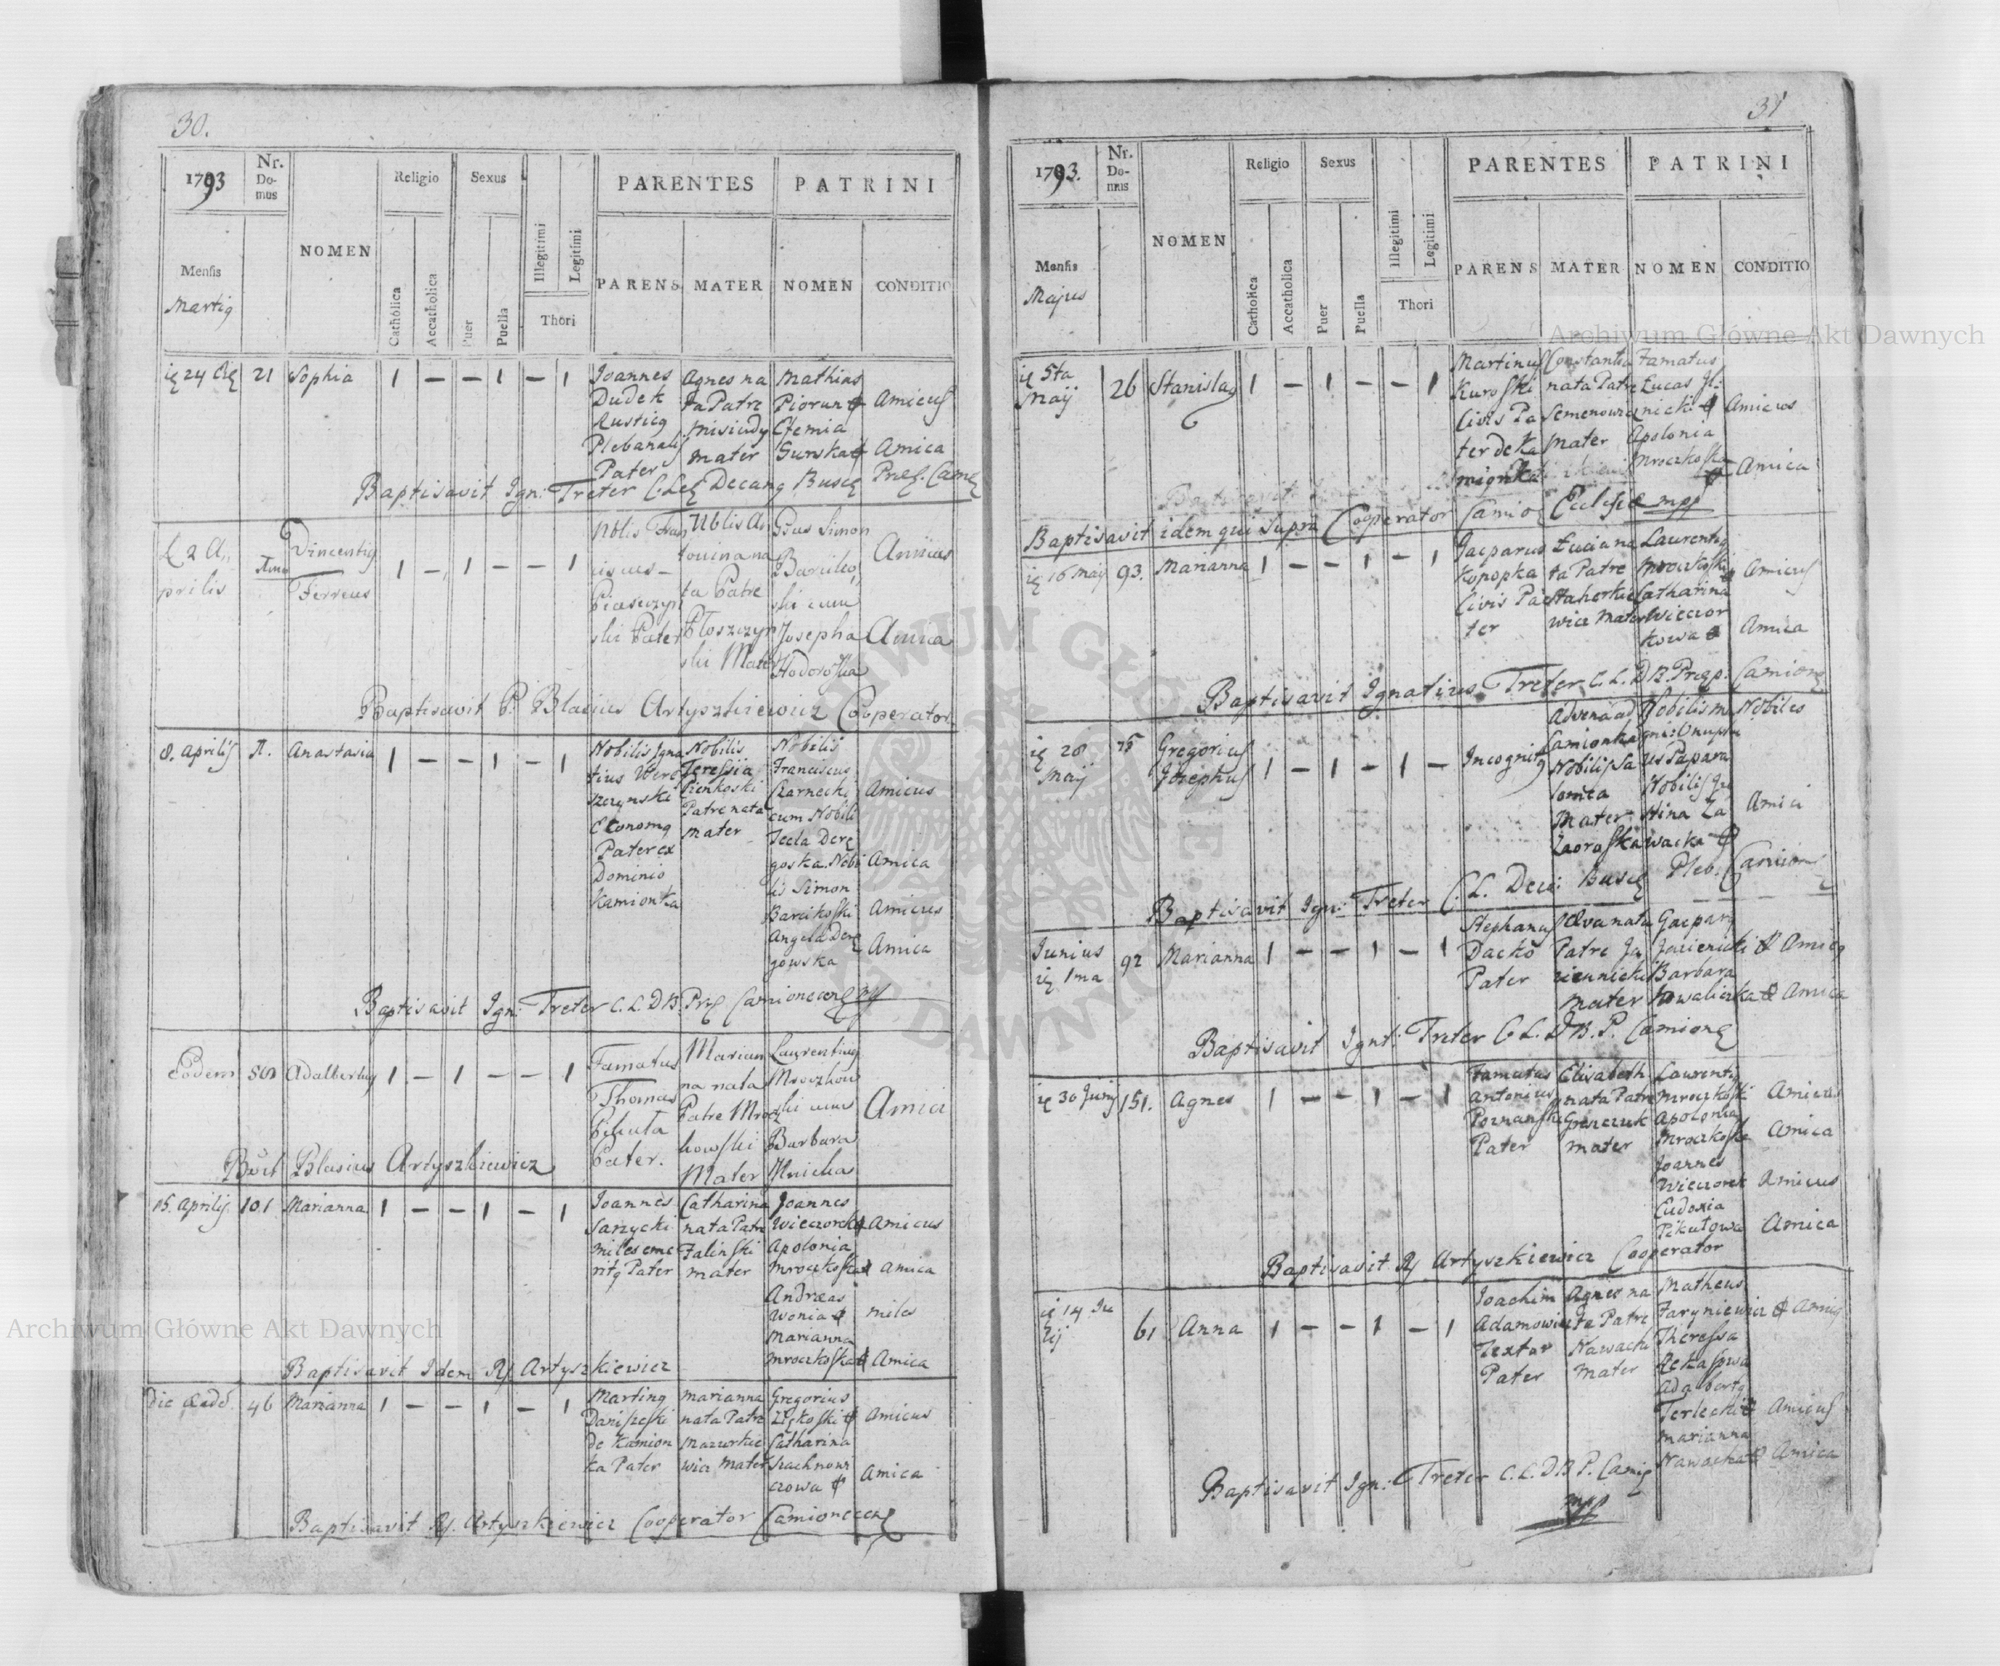 30.
1793
Nr. Domus
NOMEN
Religio
Sexus
PARENTES
PATRINI
Mensis
Martiq
Catholica
Accatholica
Puer
Puella
Illegitimi
Legitimi
Thori
PARENS
MATER
NOMEN
CONDITIO
24
21
Sophia
1 — — 1 — 1
Joannes
Dudek
Rusticq
Plebanalis
Pater
Agnes na
ta Patre
Misiudy
Mater
Mathias
Piorun
Efemia
Gurska
Amicus
Amica
Baptisavit Ign: Treter
2 A
prilis
Vincentiq
Ferreus
1 — 1 — — 1
Nblis Fran
ciscus
Piasczyn
ski Pater
Nblis An
tonina na
ta Patre
Ploszczyn
ski Mater
Gsus Simon
Barciko
ski cum
Josepha
Hodoroska
Amicus
Amica
Baptisavit P. Blasius Artyszkiewicz Cooperator
8. Aprilis
Anastasia
1 — — 1 — 1
Nobilis Igna
tius Were
szczynski
Economq
Pater ex
Dominio
Kamionka
Nobilis
Teressia
Czenkoski
Patre nata
Mater
Nobilis
Franciscus
Czarnecki
cum Nobili
Tecla Dere
goska. Nobi
lis Simon
Barcikoski
Angela Dere
gowska
Amicus
Amica
Amicus
Amica
Baptisavit Ign: Treter C. L. D B.
Eodem
Adalbertus
1 — 1 — — 1
Famatus
Thomas
Pikuta
Pater.
Marian
na nata
Patre Mrocz
kowski
Mater
Laurentius
Mroczkow
ski cum
Barbara
Hnicka
Amici
Blasius Artyszkiewicz
15. Aprilis
101
Marianna
1 — — 1 — 1
Joannes
Sarzycki
miles eme
ritq Pater
Catharina
nata Patre
Falinski
mater
Joannes
Wieczorek
Apolonia
Mroczkoska
Andreas
Wonia
Marianna
Mroczkoska
Amicus
Amica
miles
Amica
Baptisavit Idem Artyszkiewicz
Die Eadē
46
Marianna
1 — — 1 — 1
Martinq
Daniszeski
de Kamion
ka Pater
Marianna
nata Patre
Mazurkie
wicz Mater
Gregorius
Catharina
Szachnow
czowa
Amicus
Amica
Baptisavit Artyszkiewicz Cooperator
31
1793.
Nr. Domus
NOMEN
Religio
Sexus
PARENTES
PATRINI
Mensis
Majus
Catholica
Accatholica
Puer
Puella
Illegitimi
Legitimi
Thori
PARENS
MATER
NOMEN
CONDITIO
5ta
Maij
26
Stanislaq
1 — 1 — — 1
Martinus
Kuroski
Civis Pa
ter de Ka
mionka
Constantia
nata Patre
Semenowicz
Mater
Famatus
Lucas
Apolonia
Mroczkoska
Amicus
Amica
Baptisavit idem qui supra Cooperator
16 Maij
93.
Marianna
1 — — 1 — 1
Gasparus
Kopopka
Civis Pa
ter
Luciana
ta Patre
Stahorkie
wicz Mater
Laurentiq
Mroczkoski
Catharina
Wieczor
kowa
Amicus
Amica
Baptisavit Ignatius Treter C. L. D B.
28
Maij
Gregorius
Josephus
1 — 1 — 1 —
Incognitq
Advena ad
Camionka
Nobilis Sa
lomea
Mater
Zaoroska
Nobilis
Papara
Nobilis
Nobiles
Amici
Baptisavit Ign: Treter C. L.
Junius
1ma
92
Marianna
1 — — 1 — 1
Stephanus
Dacko
Pater
Eva nata
Patre Ja
zienicki
Mater
Gasparq
Jazienicki
Barbara
Kowaliczka
Amicq
Amica
Baptisavit Ignt: Treter C. L. D B. P.
30 Junij
151.
Agnes
1 — — 1 — 1
Famatus
Antonius
Poznanski
Pater
Elisabeth
nata Patre
mater
Laurentq
Mroczkoski
Apolonia
Mroczkoska
Joannes
Wieczorek
Eudoxia
Pikułowa
Amicus
Amica
Amicus
Amica
Baptisavit Artyszkiewicz Cooperator
14 Ju
lij
61
Anna
1 — — 1 — 1
Joachim
Adamowicz
Textor
Pater
Agnes na
ta Patre
Nawacki
mater
Matheus
Faryniewicz
Theressa
Adalbertq
Terlecki
Marianna
Nawacka
Amicq
Amicus
Amica
Baptisavit Ign: Treter C. L. D B P.
mpp
Archiwum Główne Akt Dawnych
Archiwum Główne Akt Dawnych
ARCHIWUM GŁÓWNE AKT DAWNYCH